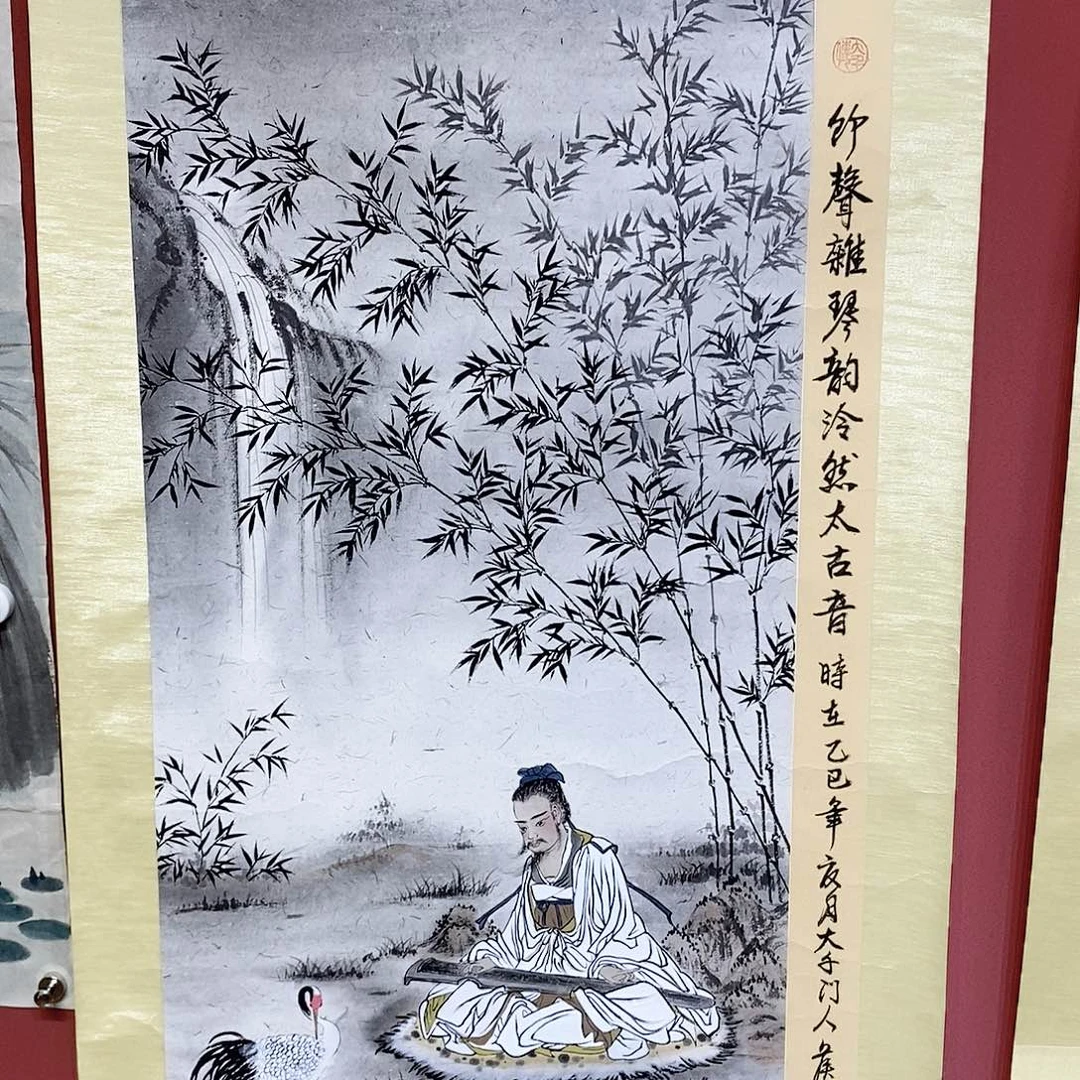 竹聲雜琴韵泠然太古音 時在乙巳年亥月大千门人